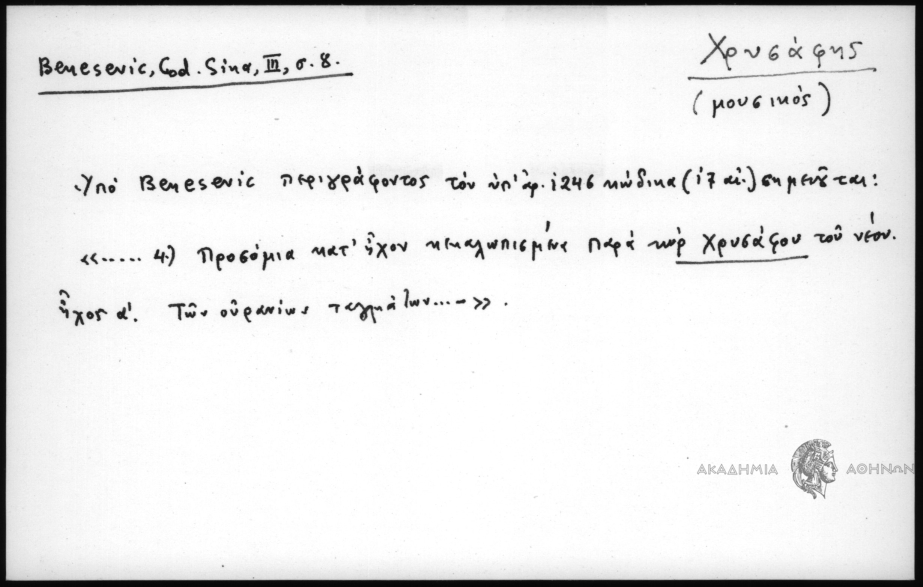 Benesevic, Cod. Sina, III, σ. 8.
Χρυσάφης
(μουσικός)
Ὑπό Benesevic περιγράφοντος τόν ὑπ' ἀρ. 1246 κώδικα (17 αἰ.) σημειοῦται:
«..... 4) Προσόμια κατ' ἦχον κεκαλωπισμένα παρά κύρ Χρυσάφου τοῦ νέου.
ἦχος α'. Τῶν οὐρανίων ταγμάτων....».
ΑΚΑΔΗΜΙΑ ΑΘΗΝΩΝ